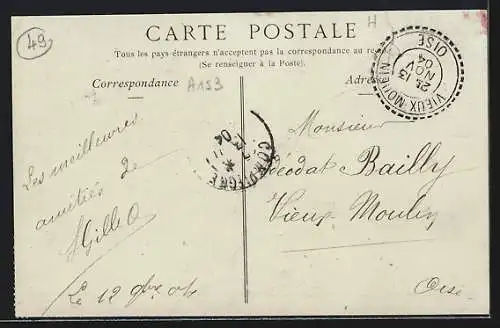 49
H
CARTE POSTALE
Tous les pays étrangers n'acceptent pas la correspondance au
(Se renseigner à la Poste).
Correspondance
A153
VIEUX-MOULIN
OISE
13
NOV
04
COMPIÈGNE
04
Monsieur
Déodat Bailly
Vieux Moulin
Oise
Les meilleures
amitiés de
Le 12 9bre 04